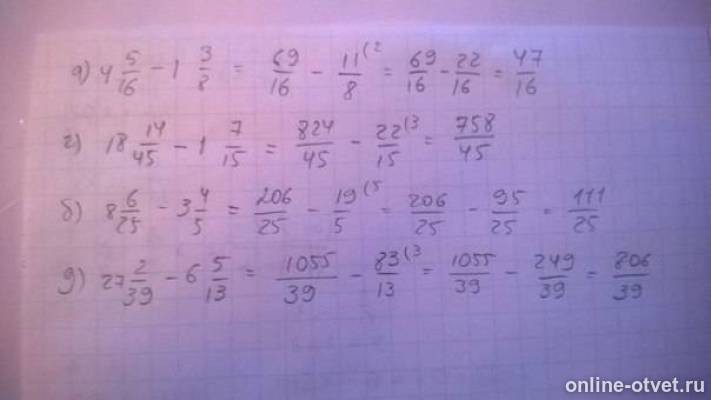 а) 4 5/16 - 1 3/8 = 69/16 - 11/8 (2 = 69/16 - 22/16 = 47/16
г) 18 14/45 - 1 7/15 = 824/45 - 22/15 (3 = 758/45
б) 8 6/25 - 3 4/5 = 206/25 - 19/5 (5 = 206/25 - 95/25 = 111/25
д) 27 2/39 - 6 5/13 = 1055/39 - 83/13 (3 = 1055/39 - 249/39 = 806/39
online-otvet.ru